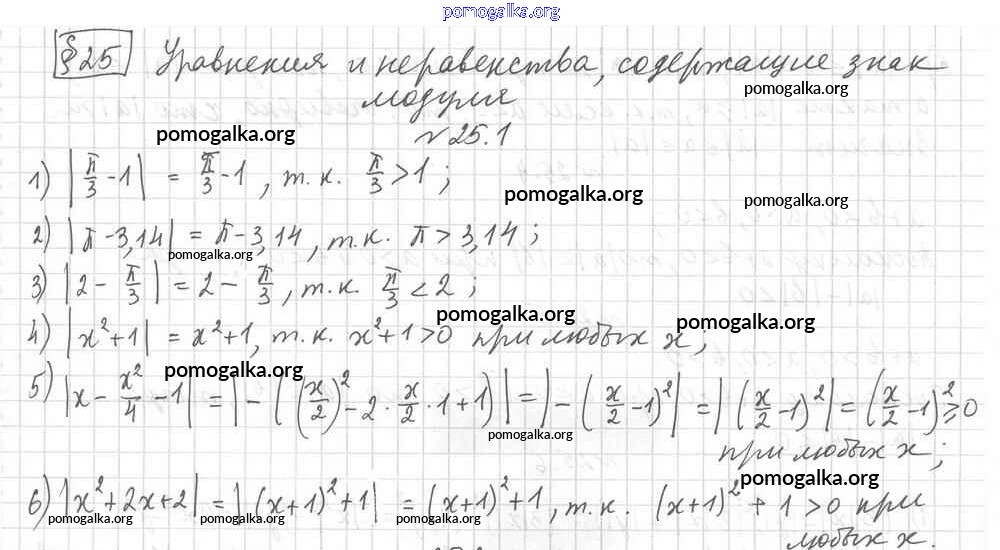 pomogalka.org
§25 Уравнения и неравенства, содержащие знак
pomogalka.org
модуля
pomogalka.org
№25.1
1) |π/3 - 1| = π/3 - 1, т.к. π/3 > 1;
pomogalka.org
pomogalka.org
2) |π - 3,14| = π - 3,14, т.к. π > 3,14;
pomogalka.org
3) |2 - π/3| = 2 - π/3, т.к. π/3 < 2;
pomogalka.org
pomogalka.org
4) |x²+1| = x²+1, т.к. x²+1>0 при любых x;
pomogalka.org
5) |x - x²/4 - 1| = |-((x/2)² - 2·x/2·1+1)| = |-(x/2-1)²| = |(x/2-1)²| = (x/2-1)² ≥ 0
pomogalka.org
при любых x;
pomogalka.org
6) |x²+2x+2| = |(x+1)²+1| = (x+1)²+1, т.к. (x+1)²+1>0 при
pomogalka.org pomogalka.org pomogalka.org pomogalka.org
любых x.